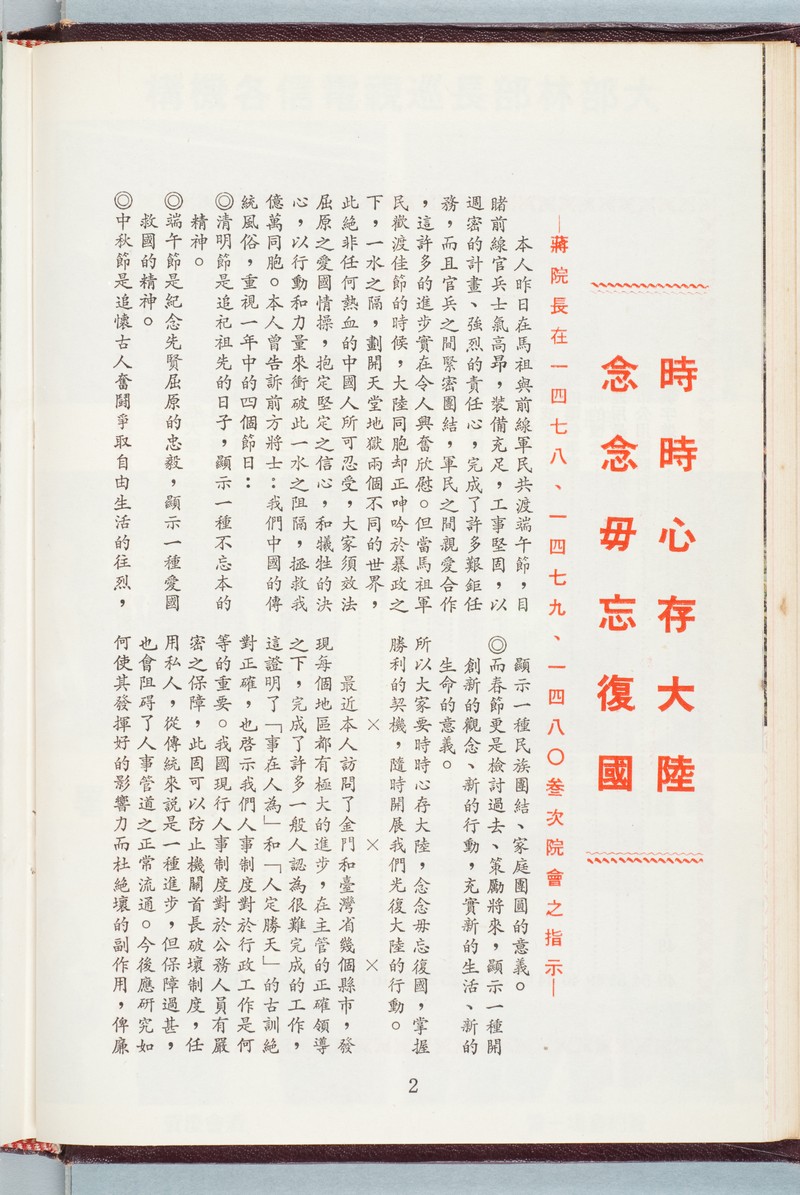 時時心存大陸
念念毋忘復國
—蔣院長在一四七八、一四七九、一四八〇叁次院會之指示—
本人昨日在馬祖與前線軍民共渡端午節，目
睹前線官兵士氣高昂，裝備充足，工事堅固，以
週密的計畫、強烈的責任心，完成了許多艱鉅任
務，而且官兵之間緊密團結，軍民之間親愛合作
，這許多的進步實在令人興奮欣慰。但當馬祖軍
民歡渡佳節的時候，大陸同胞却正呻吟於暴政之
下，一水之隔，劃開天堂地獄兩個不同的世界，
此絕非任何熱血的中國人所可忍受，大家須效法
屈原之愛國情操，抱定堅定之信心，和犧牲的決
心，以行動和力量來衝破此一水之阻隔，拯救我
億萬同胞。本人曾告訴前方將士：我們中國的傳
統風俗，重視一年中的四個節日：
◎清明節是追祀祖先的日子，顯示一種不忘本的
精神。
◎端午節是紀念先賢屈原的忠毅，顯示一種愛國
救國的精神。
◎中秋節是追懷古人奮鬪爭取自由生活的往烈，
顯示一種民族團結、家庭團圓的意義。
◎而春節更是檢討過去、策勵將來，顯示一種開
創新的觀念、新的行動，充實新的生活、新的
生命的意義。
所以大家要時時心存大陸，念念毋忘復國，掌握
勝利的契機，隨時開展我們光復大陸的行動。
× × ×
最近本人訪問了金門和臺灣省幾個縣市，發
現每個地區都有極大的進步，在主管的正確領導
之下，完成了許多一般人認為很難完成的工作，
這證明了「事在人為」和「人定勝天」的古訓絕
對正確，也啓示我們人事制度對於行政工作是何
等的重要。我國現行人事制度對於公務人員有嚴
密之保障，此固可以防止機關首長破壞制度，任
用私人，從傳統來說是一種進步，但保障過甚，
也會阻碍了人事管道之正常流通。今後應研究如
何使其發揮好的影響力而杜絕壞的副作用，俾廉
2